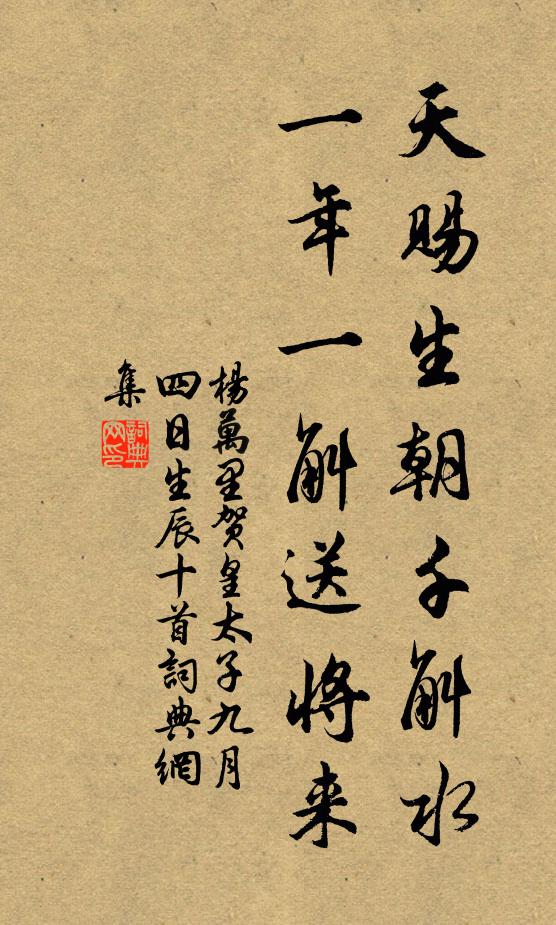 天賜生朝千斛水
一年一斛送將来
楊萬里賀皇太子九月
四日生辰十首詞典網
集
詞典
网印